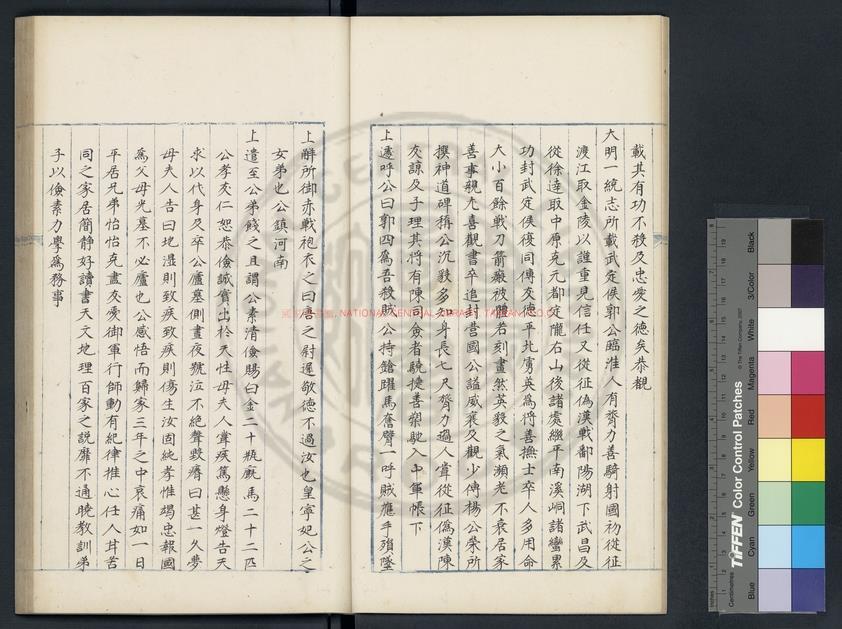 載其有功不矜及忠愛之德矣恭覩
大明一統志所載武定侯郭公臨淮人有膂力善騎射國初從征
渡江取金陵以誰重見信任又從征偽漢戰鄱陽湖下武昌及
從徐達取中原克元都定隴右山後諸處繼平南溪峒諸蠻累
功封武定侯後同傅友德平北虜英為將善撫士卒人多用命
大小百餘戰刀箭瘢被體若刻畫然英毅之氣瀕老不衰居家
善事親尤喜觀書卒追封營國公謚威襄又觀少傅楊公榮所
撰神道碑稱公沉毅多知身長七尺膂力過人嘗從征偽漢陳
友諒及子理其將有陳同僉者驍捷善槊馳入中軍帳下
上遽呼公曰郭四為吾殺賊公持鎗躍馬奮臂一呼賊應手殞墜
上解所御赤戰袍衣之曰唐之尉遲敬德不過汝也皇寧妃公之
女弟也公鎮河南
上遣至公弟餞之且謂公素清儉賜白金二十瓶廐馬二十二匹
公孝友仁恕恭儉誠實出於天性母夫人嘗疾篤懸身燈告天
求以代身及卒公廬墓側晝夜號泣不絕聲毀瘠曰甚一久夢
母夫人告曰地濕則致疾致疾則傷生汝固純孝惟竭忠報國
為父母光墓不必廬也公感悟而歸家三年之中哀痛如一日
平居兄弟怡怡克盡友愛御軍行師動有紀律推心任人甘苦
同之家居簡靜好讀書天文地理百家之說靡不通曉教訓弟
子以儉素力學為務事
國家圖書館, NATIONAL CENTRAL LIBRARY, TAIWAN, R.O.C.
TIFFEN Color Control Patches
© The Tiffen Company, 2007
Centimetres
Inches
Blue
Cyan
Green
Yellow
Red
Magenta
White
3/Color
Black